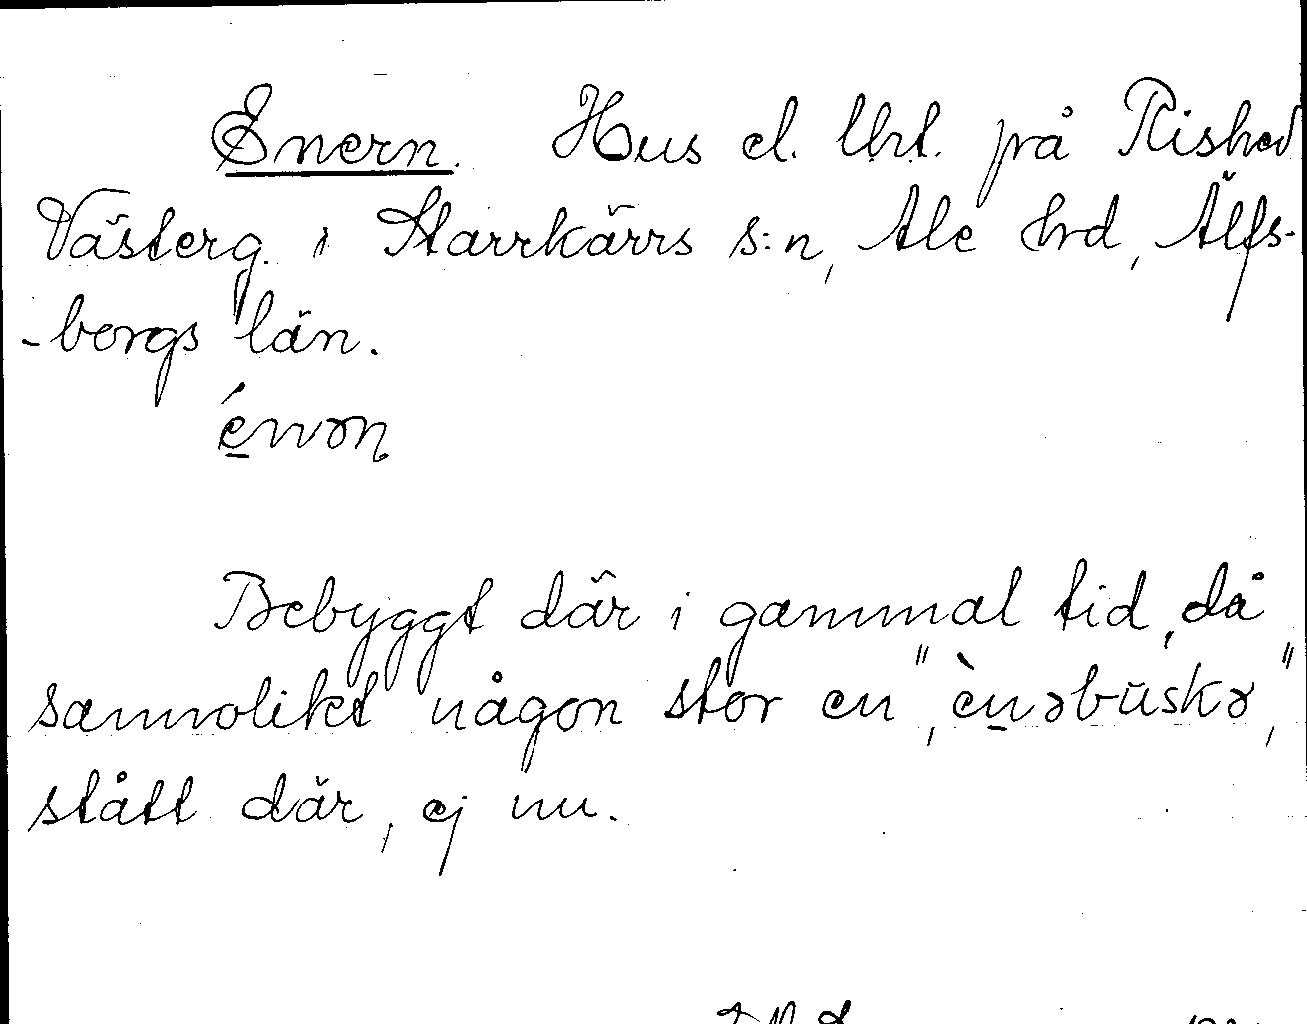 Enern. Hus el. lht. på Rished
Västerg. i Starrkärrs s:n, Ale hrd, Älfs-
-borgs län.
Bebyggt där i gammal tid, då
sannolikt någon stor en, "ènəbuskə",
stått där, ej nu.